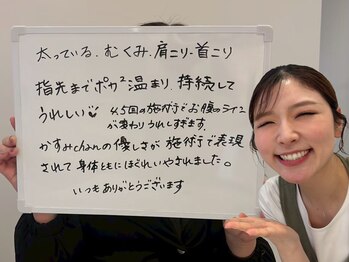 太っている、むくみ、肩こり・首こり
指先までポカ²温まり、持続して
うれしい 4.5回の施術でお腹のライン
が変わりうれしすぎます。
かすみchanの優しさが施術で表現
されて身体ともにほぐれいやされました。
いつもありがとうございます